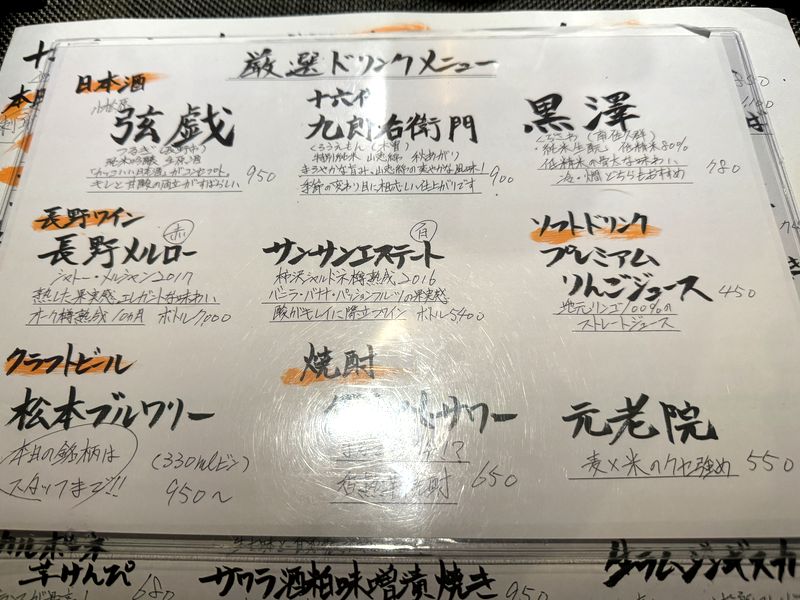 厳選ドリンクメニュー
日本酒
弦戯
つるぎ(長野市)
純米吟醸 生原酒
「カッコいい日本酒」がコンセプト。
キレと甘酸の両立がすばらしい 950
十六代
九郎右衛門
(くろうえもん)(木曽)
特別純米 山恵錦 秋あがり
まろやかな旨み、山恵錦の爽やかな風味!
季節の変わり目に相応しい仕上がりです 900
黒澤
(くろさわ)(南佐久郡)
・純米生酛 低精米80%
低精米の骨太な味わい
冷・燗どちらもおすすめ 780
長野ワイン
長野メルロー 赤
シャトー・メルシャン2017
熟した果実感、エレガントな味わい
オーク樽熟成10カ月 ボトル7,000
サンサンエステート 白
柿沢シャルドネ樽熟成 2016
バニラ・バナナ・パッションフルーツの果実感
酸がキレイに際立つワイン ボトル5400
ソフトドリンク
プレミアム
りんごジュース 450
地元リンゴ100%の
ストレートジュース
クラフトビール
松本ブルワリー
本日の銘柄は
スタッフまで!!
(330mlビン)
950~
焼酎
サワー
650
元老院
麦×米のクセ強め 550
芋けんぴ 680
サワラ酒粕味噌漬焼き 950
生ラムジンギスカ